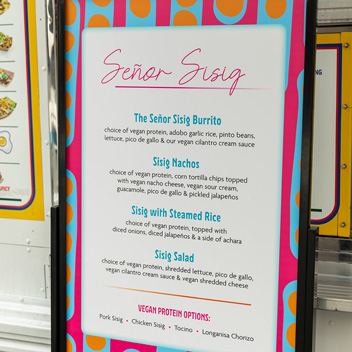 Señor Sisig
The Señor Sisig Burrito
choice of vegan protein, adobo garlic rice, pinto beans,
lettuce, pico de gallo & our vegan cilantro cream sauce
Sisig Nachos
choice of vegan protein, corn tortilla chips topped
with vegan nacho cheese, vegan sour cream,
guacamole, pico de gallo & pickled jalapeños
Sisig with Steamed Rice
choice of vegan protein, topped with
diced onions, diced jalapeños & a side of achara
Sisig Salad
choice of vegan protein, shredded lettuce, pico de gallo,
vegan cilantro cream sauce & vegan shredded cheese
VEGAN PROTEIN OPTIONS:
Pork Sisig • Chicken Sisig • Tocino • Longanisa Chorizo